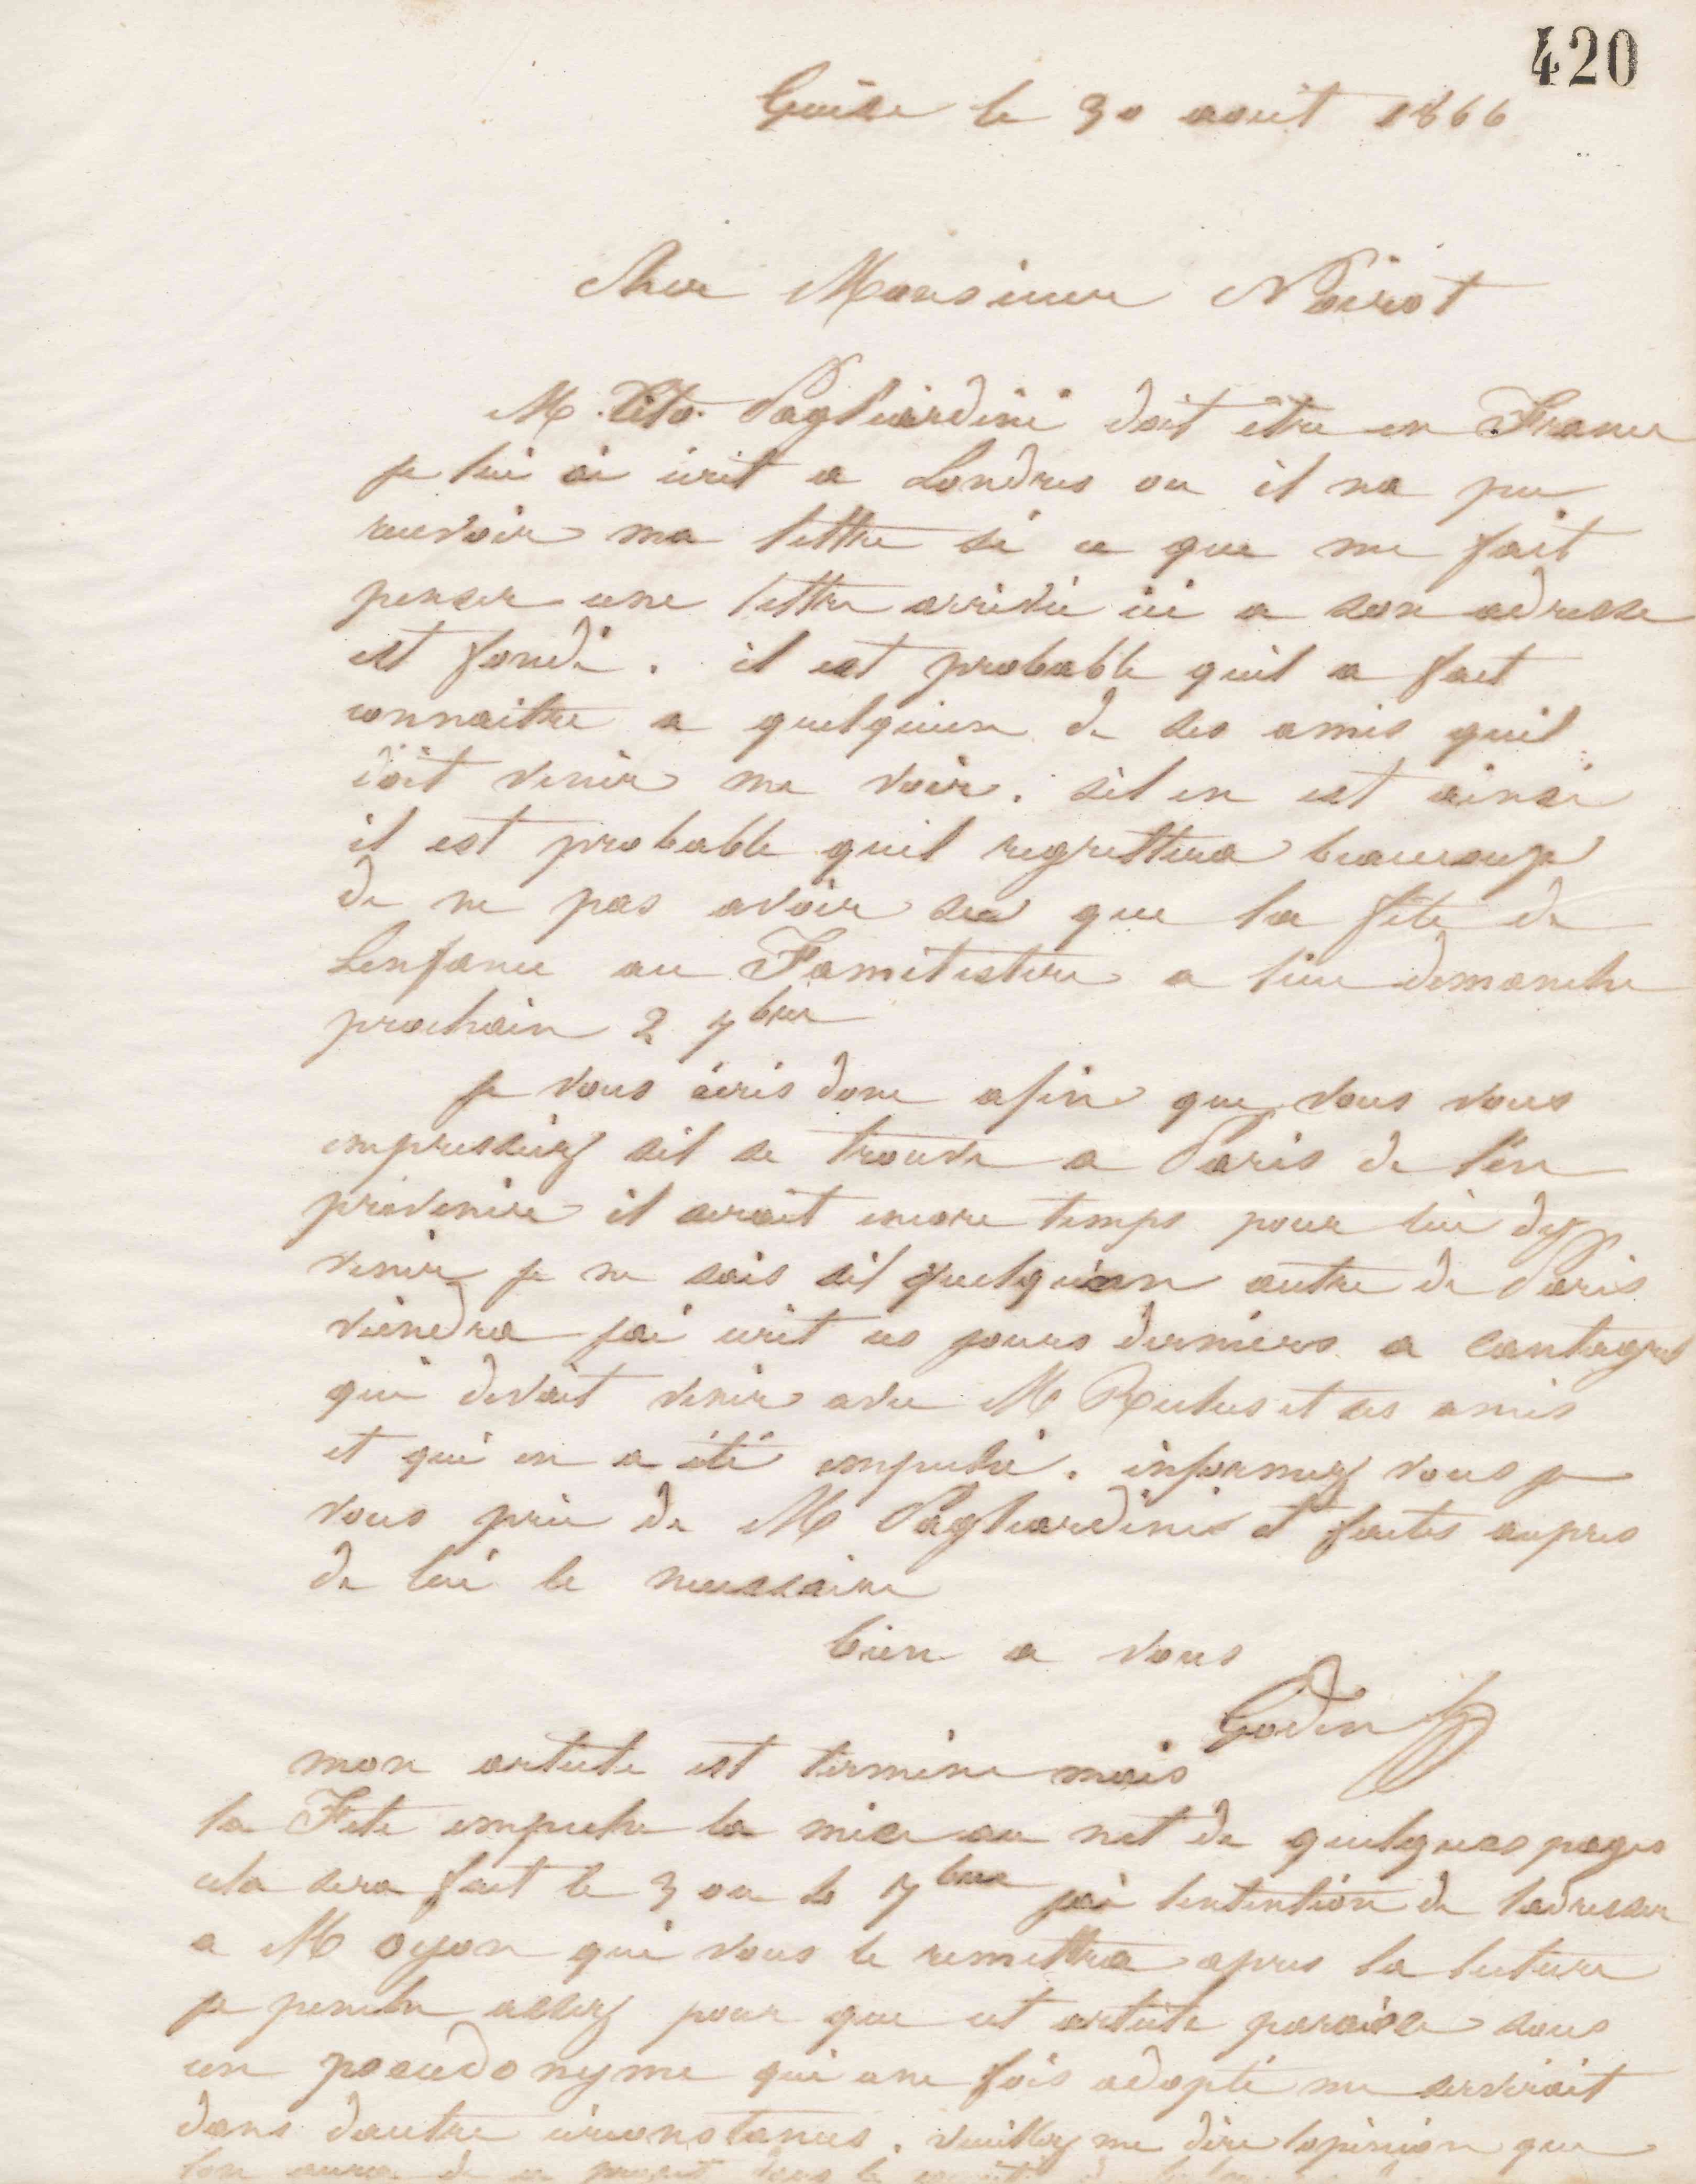 420
Guise le 30 août 1866
Cher Monsieur Noirot
M. Tito. Pagliardini doit être en France
je lui ai écrit a Londres ou il na pu
recevoir ma lettre si ce que me fait
penser une lettre arrivée ici a son adresse
est fondé. il est probable quil a fait
connaitre a quelquun de ses amis quil
doit venir me voir. sil en est ainsi
il est probable quil regrettera beaucoup
de ne pas avoir su que la fête de
Lenfance au Familistère a lieu dimanche
prochain 2 7bre
je vous écris donc afin que vous vous
empressiez sil se trouve a Paris de len
prévenir il serait encore temps pour lui dy
venir je ne sais sil quelquun autre de Paris
viendra jai écrit ces jours derniers a Cantagrel
qui devait venir avec M Reclus et ses amis
et qui en a été empeché. informez vous je
vous prie de M Pagliardini et faites aupres
de lui le necessaire
bien a vous
Godin
mon article est terminé mais
la Fete empeche la mise au net de quelques pages
cela sera fait le 3 ou le 7bre jai lintention de ladresser
a M oyon qui vous le remettra apres la lecture
je penche assez pour que cet article paraisse sous
un pseudonyme qui une fois adopté me servirait
dans dautre circonstances. veuillez me dire lopinion que
lon aura de ce projet dans le